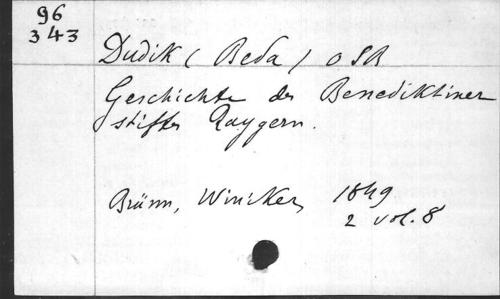 96
343
Dudik (Beda) OSB
Geschichte des Benediktiner
stiftes Raygern.
Brünn, Winiker, 1849
2 vol. 8